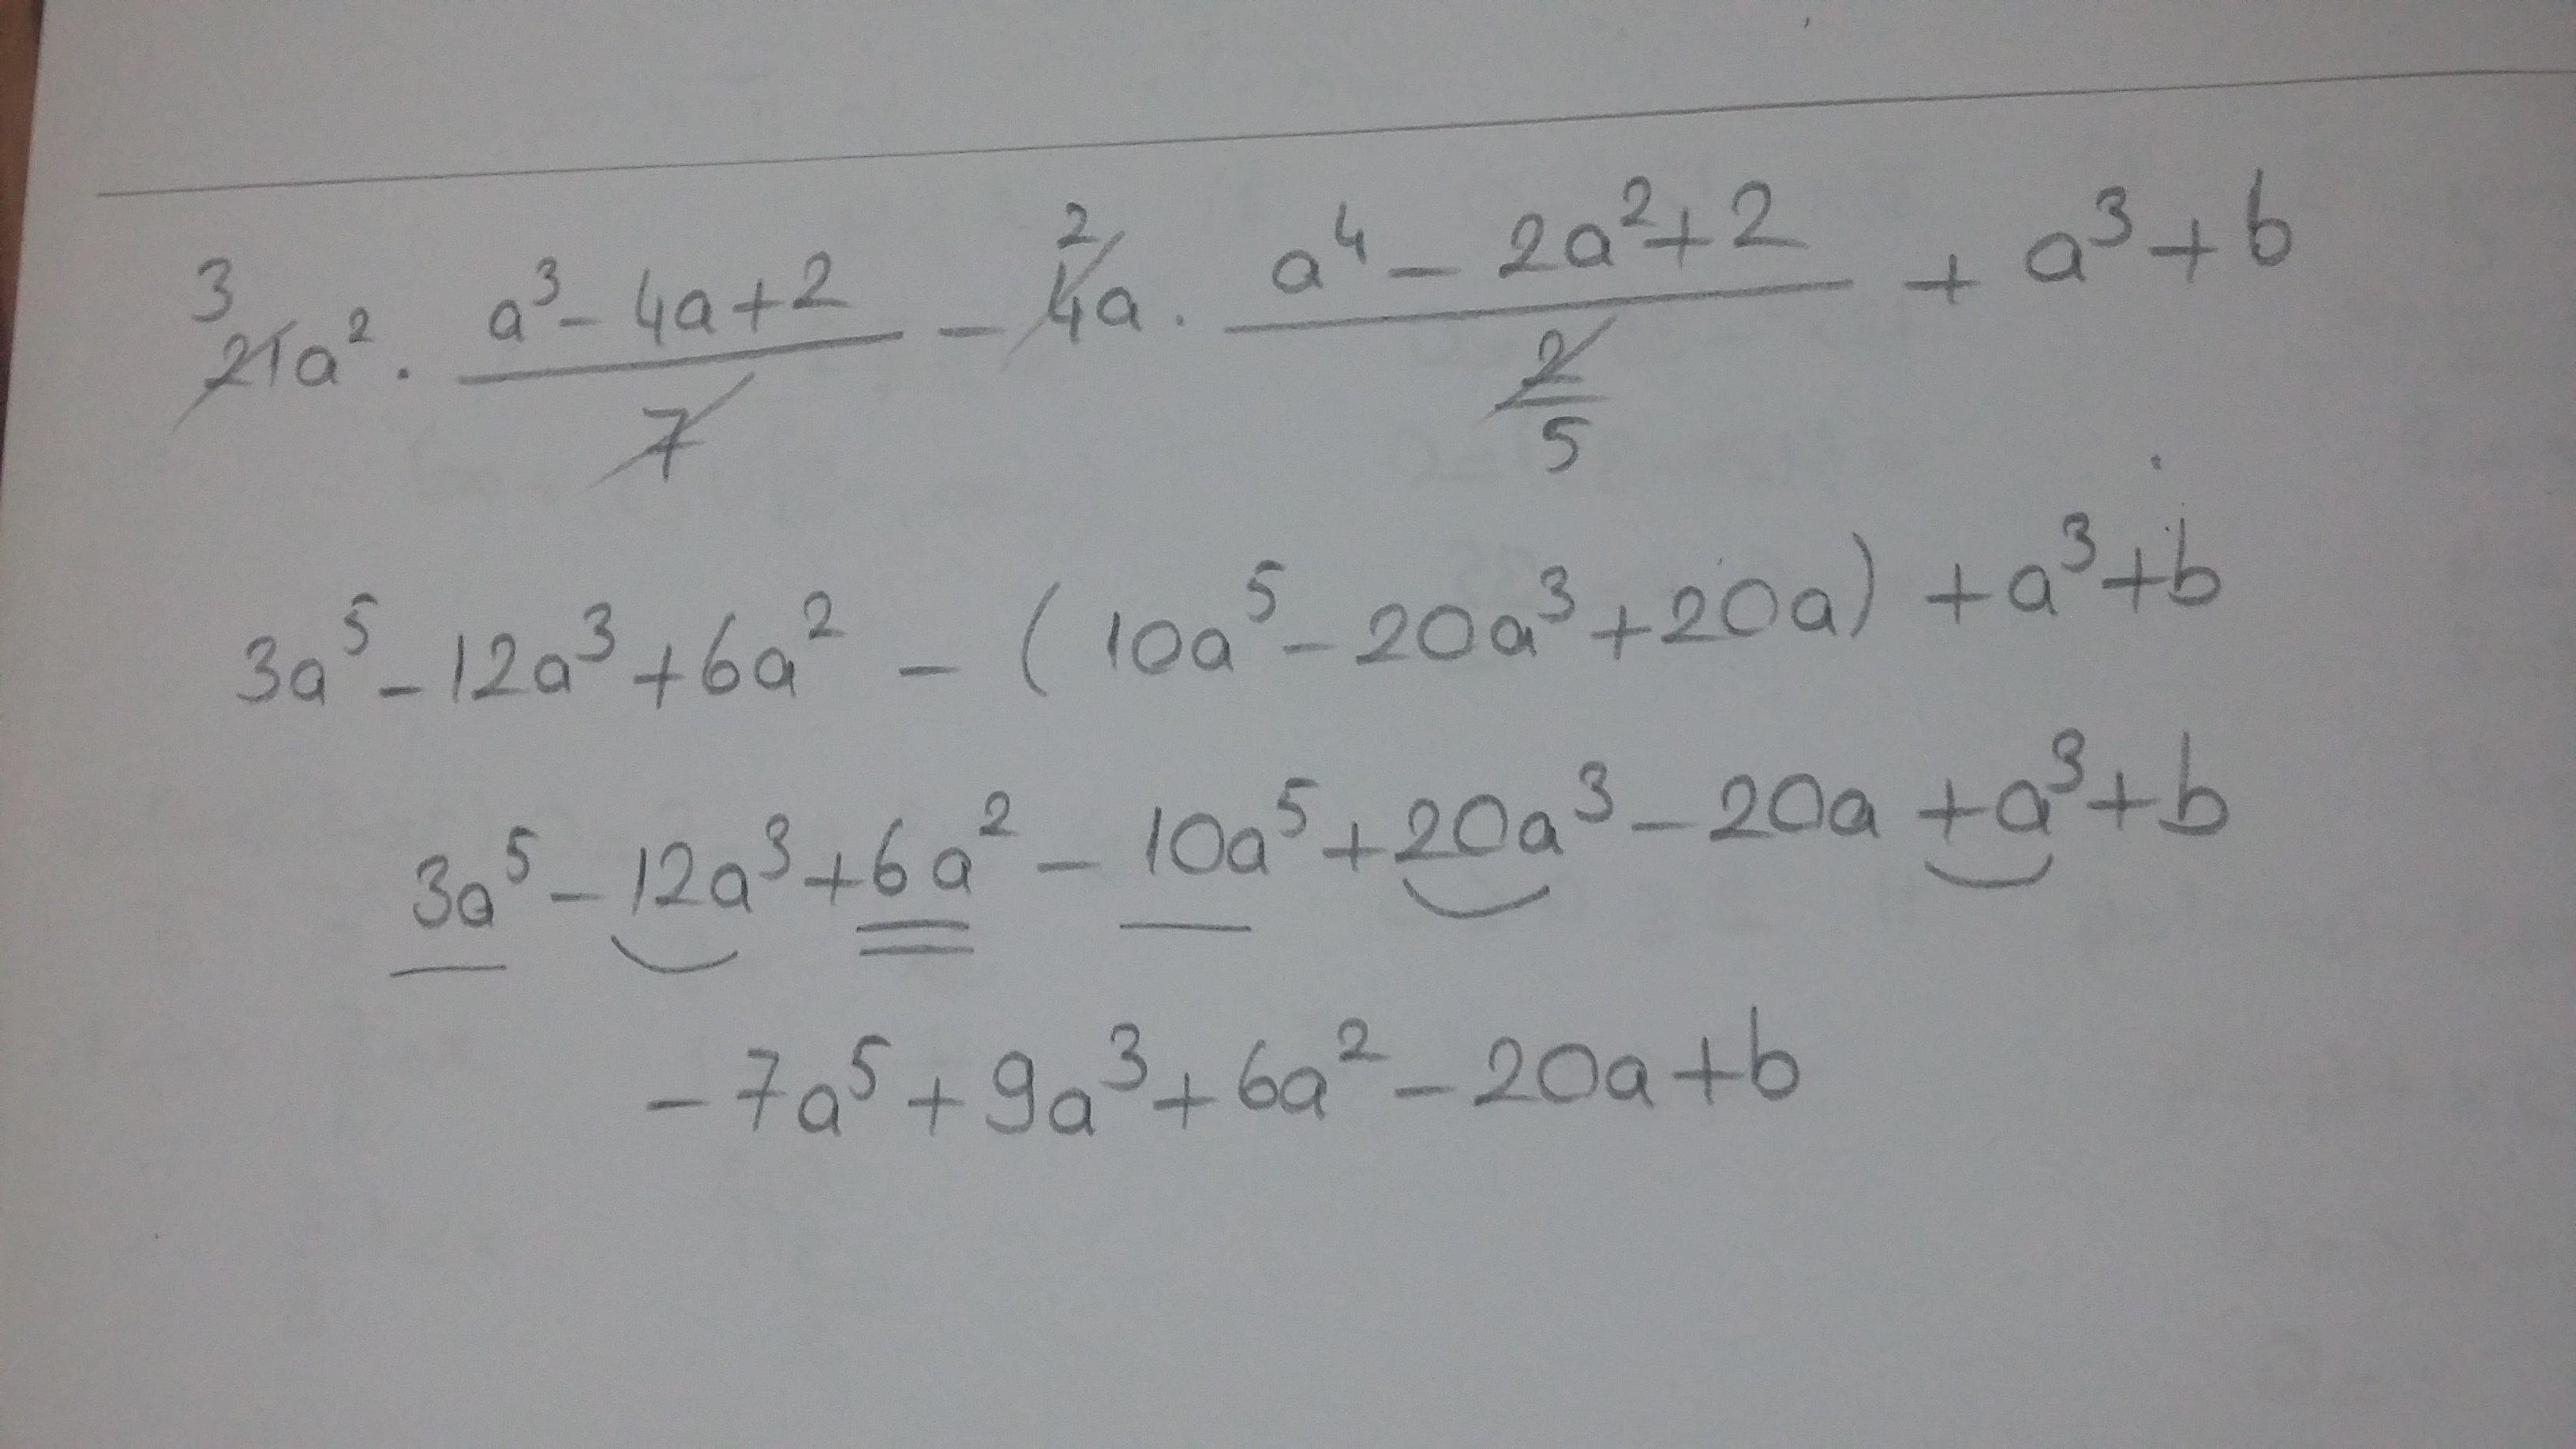 3
2̶1̶a² · (a³ - 4a + 2)/7̶ - 2 4̶a · (a⁴ - 2a² + 2)/(2̶/5) + a³ + b
3a⁵ - 12a³ + 6a² - (10a⁵ - 20a³ + 20a) + a³ + b
3a⁵ - 12a³ + 6a² - 10a⁵ + 20a³ - 20a + a³ + b
- 7a⁵ + 9a³ + 6a² - 20a + b